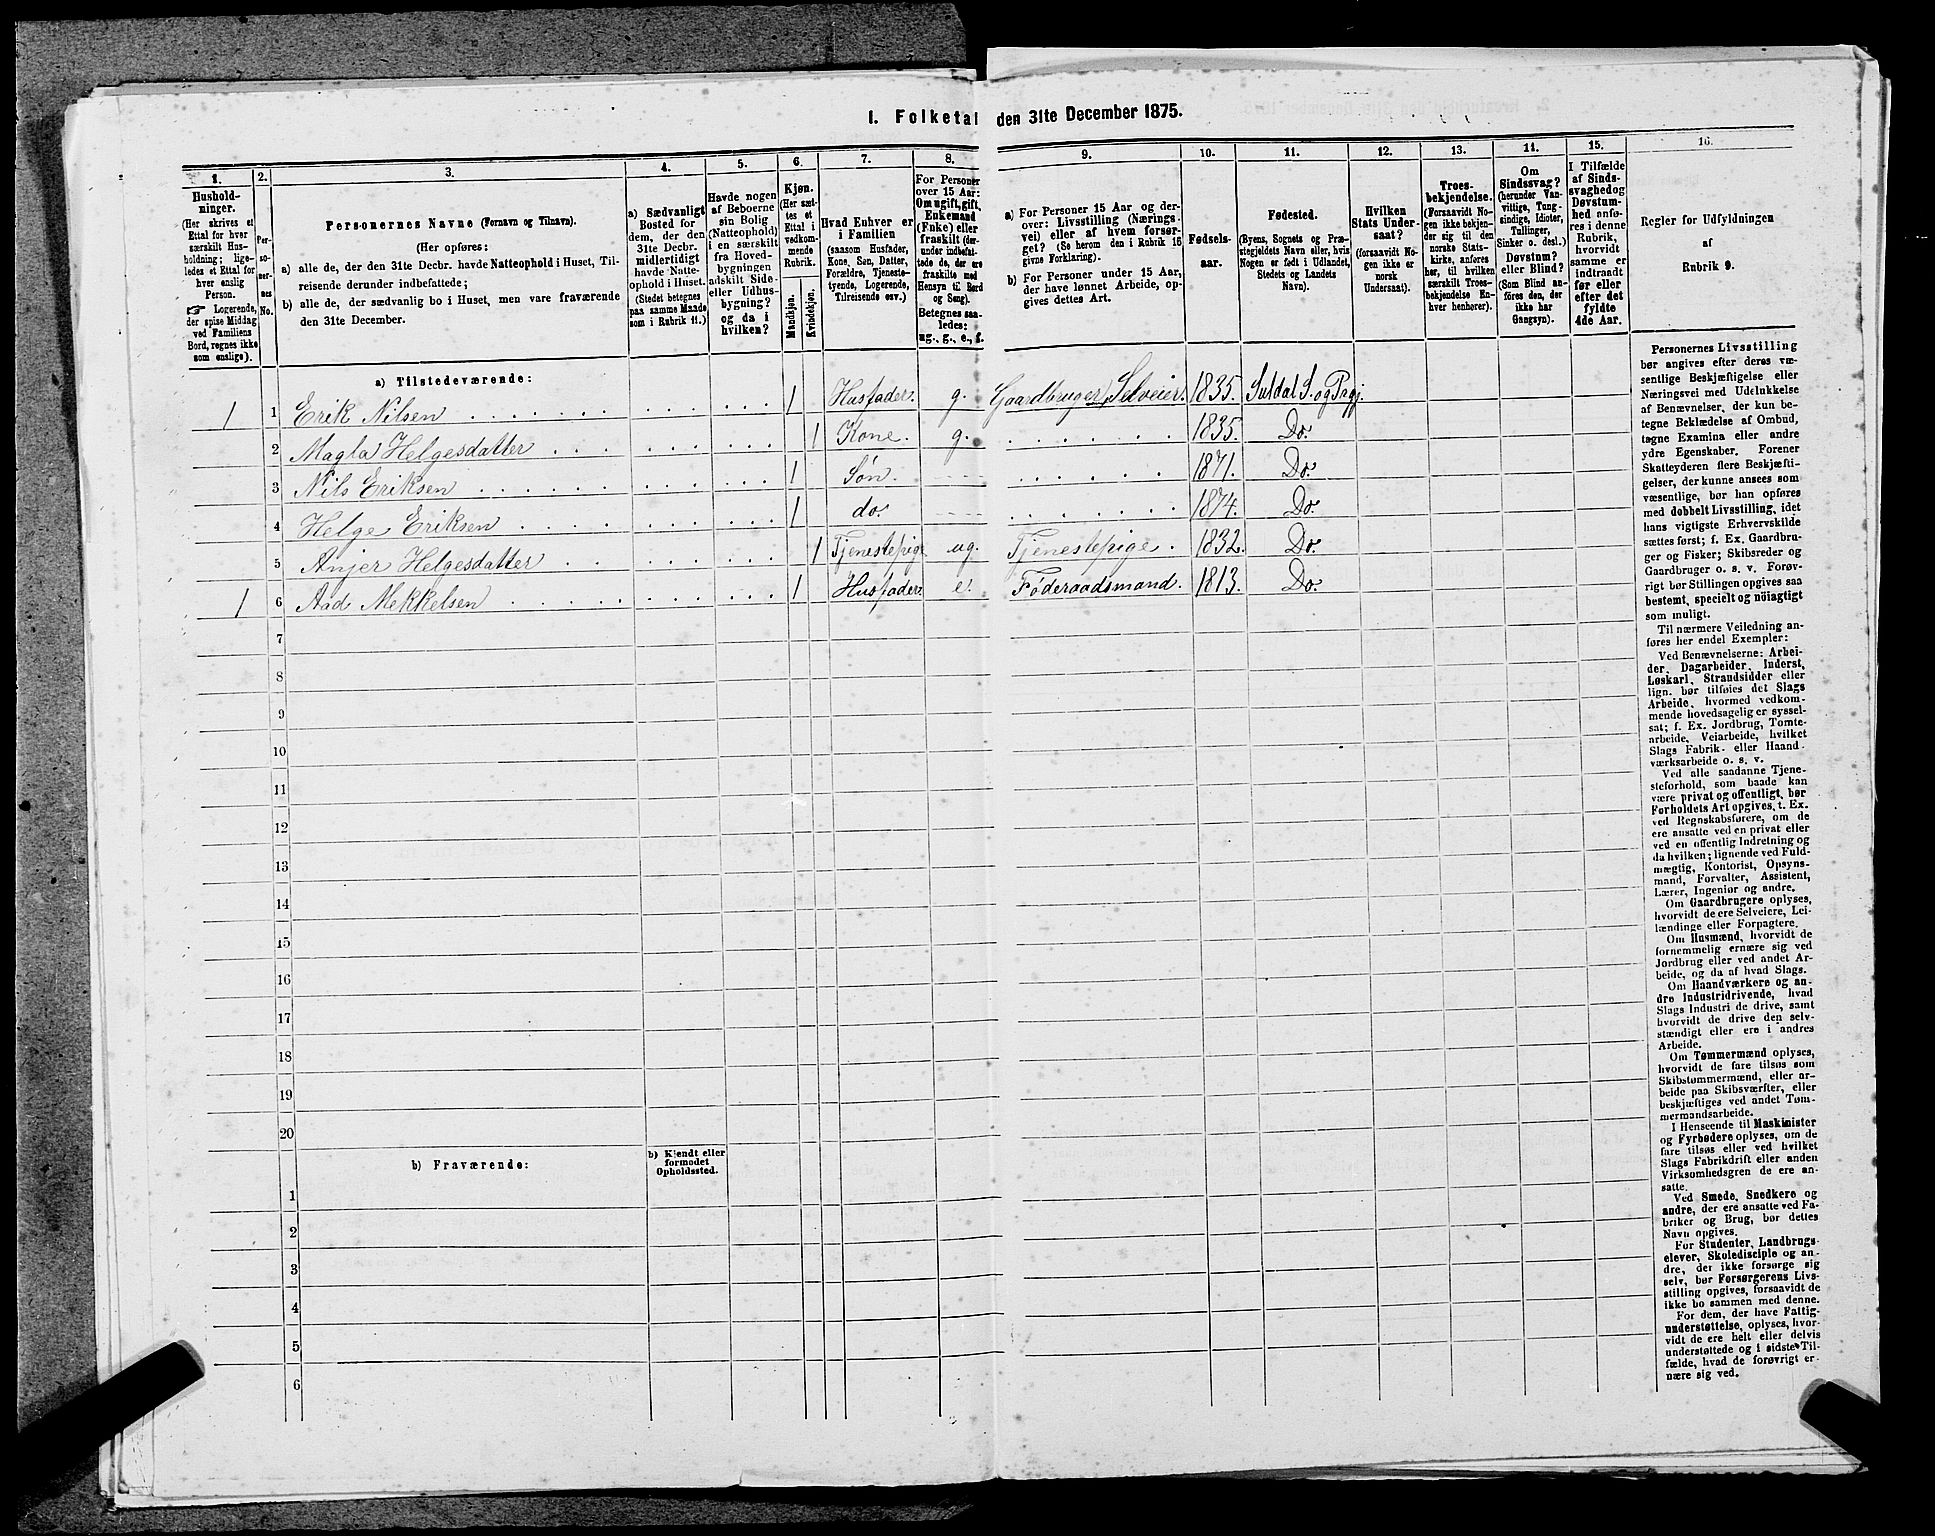 I. Folketal den 31te December 1875.
1. 2. 3. 4. 5. 6. 7. 8. 9. 10. 11. 12. 13. 14. 15. 16.
Hushold-
ninger.
(Her skrives et
Ettal for hver
særskilt Hus-
holdning; lige-
ledes et Ettal for
hver enslig
Person.
☞ Logerende,
der spise Middag
ved Familiens
Bord, regnes ikke
som enslige).
Per-
so-
ner-
nes
No.
Personernes Navne (Fornavn og Tilnavn).
(Her opføres:
a) alle de, der den 31te Decbr. havde Natteophold i Huset, Til-
reisende derunder indbefattede;
b) alle de, der sædvanlig bo i Huset, men vare fraværende
den 31te December.
a) Sædvanligt
Bosted for
dem, der den
31te Decbr.
midlertidigt
havde Natte-
ophold i Huset.
(Stedet betegnes
paa samme Maade
som i Rubrik 11.)
Havde nogen
af Beboerne
sin Bolig
(Natteophold)
i en særskilt
fra Hoved-
bygningen
adskilt Side-
eller Udhus-
bygning?
og da i
hvilken?
Kjøn.
(Her sæt-
tes et
Ettal i
vedkom-
mende
Rubrik.
Mandkjøn.
Kvindekjøn.
Hvad Enhver er
i Familien
(saasom Husfader,
Kone, Søn, Datter,
Forældre, Tjeneste-
tyende, Logerende,
Tilreisende osv.)
For Personer
over 15 Aar:
Om ugift, gift,
Enkemand
(Enke) eller
fraskilt (der-
under indbefat-
tede de, der ere
fraskilte med
Hensyn til Bord
og Seng).
Betegnes saa-
ledes:
ug., g., e., f.
a) For Personer 15 Aar og der-
over: Livsstilling (Nærings-
vei) eller af hvem forsør-
get? (Se herom den i Rubrik 16
givne Forklaring).
b) For Personer under 15 Aar,
der have lønnet Arbeide, op-
gives dettes Art.
Fødsels-
aar.
Fødested.
(Byens, Sognets og Præ-
stegjeldets Navn eller, hvis
Nogen er født i Udlandet,
Stedets og Landets
Navn).
Hvilken
Stats Under-
saat?
(forsaavidt No-
gen ikke er
norsk
Undersaat).
Troes-
bekjendelse.
(Forsaavidt No-
gen ikke bekjen-
der sig til den
norske Stats-
kirke, anføres
her, til hvilken
særskilt Troes-
bekjendelse En-
hver henhører).
Om
Sindssvag?
(herunder Van-
vittige, Tung-
sindige, Idioter,
Tullinger,
Sinker o. desl.)
Døvstum?
eller Blind?
(Som Blind an-
føres den, der
ikke har
Gangsyn).
I Tilfælde
af Sinds-
svaghed og
Døvstum-
hed anfø-
res i denne
Rubrik,
hvorvidt
samme er
indtraadt
før eller
efter det
fyldte
4de Aar.
Regler for Udfyldningen
af
Rubrik 9.
a) Tilstedeværende:
1 1 Erik Nilsen 1 Husfader. g. Gaardbruger, Selveier. 1835. Suldal S. og Prgj.
2 Magla Helgesdatter 1 Kone. g. 1835. Do.
3 Nils Eriksen 1 Søn. 1871. Do.
4 Helge Eriksen 1 do. 1874. Do.
5 Anjer Helgesdatter 1 Tjenestepige ug. Tjenestepige. 1832. Do.
1 6 Aad Mekkelsen 1 Husfader. e. Føderaadsmand. 1813. Do.
7
8
9
10
11
12
13
14
15
16
17
18
19
20
b) Fraværende:
b) Kjendt eller
formodet
Opholdssted.
1
2
3
4
5
6
Personernes Livsstilling
bør angives efter deres væ-
sentlige Beskjæftigelse eller
Næringsvei med Udelukkelse
af Benævnelser, der kun be-
tegne Beklædelse af Ombud,
tagne Examina eller andre
ydre Egenskaber. Forener
Skatteyderen flere Beskjæfti-
gelser, der kunne ansees som
væsentlige, bør han opføres
med dobbelt Livsstilling, idet
hans vigtigste Erhvervskilde
sættes først; f. Ex. Gaardbru-
ger og Fisker; Skibsreder og
Gaardbruger o. s. v. Forøv-
rigt bør Stillingen opgives saa
bestemt, specielt og nøiagtigt
som muligt.
Til nærmere Veiledning an-
føres her endel Exempler:
Ved Benævnelserne: Arbei-
der, Dagarbeider, Inderst,
Løskarl, Strandsidder eller
lign. bør tilføies det Slags
Arbeide, hvormed vedkom-
mende hovedsagelig er syssel-
sat; f. Ex. Jordbrug, Tomte-
arbeide, Veiarbeide, hvilket
Slags Fabrik- eller Haand-
værksarbeide o. s. v.
Ved alle saadanne Tjene-
steforhold, som baade kan
være privat og offentligt, bør
Forholdets Art opgives, t. Ex.
ved Regnskabsførere, om de
ere ansatte ved en privat eller
ved en offentlig Indretning og
da hvilken; lignende ved Fuld-
mægtig, Kontorist, Opsyns-
mand, Forvalter, Assistent,
Lærer, Ingeniør og andre.
Om Gaardbrugere oplyses,
hvorvidt de ere Selveiere, Lei-
lændinge eller Forpagtere.
Om Husmænd, hvorvidt de
fornemmelig ernære sig ved
Jordbrug eller ved andet Ar-
beide, og da af hvad Slags.
Om Haandværkere og an-
dre Industridrivende, hvad
Slags Industri de drive, samt
hvorvidt de drive den selv-
stændigt eller ere i andres
Arbeide.
Om Tømmermænd oplyses,
hvorvidt de fare tilsøs som
Skibstømmermænd, eller ar-
beide paa Skibsværfter, eller
beskjæftiges ved andet Tøm-
mermandsarbeide.
I Henseende til Maskinister
og Fyrbødere oplyses, om de
fare tilsøs eller ved hvilket
Slags Fabrikdrift eller anden
Virksomhedsgren de ere an-
satte.
Ved Smede, Snedkere og
andre, der ere ansatte ved Fa-
briker og Brug, bør dettes
Navn opgives.
For Studenter, Landbrugs-
elever, Skoledisciple og an-
dre, der ikke forsørge sig
selv, bør Forsørgerens Livs-
stilling opgives, forsaavidt de
ikke bo sammen med denne.
For dem, der have Fattig-
understøttelse, oplyses, hvor-
vidt de ere helt eller delvis
understøttede og i sidste Til-
fælde, hvad de forøvrigt er-
nære sig ved.